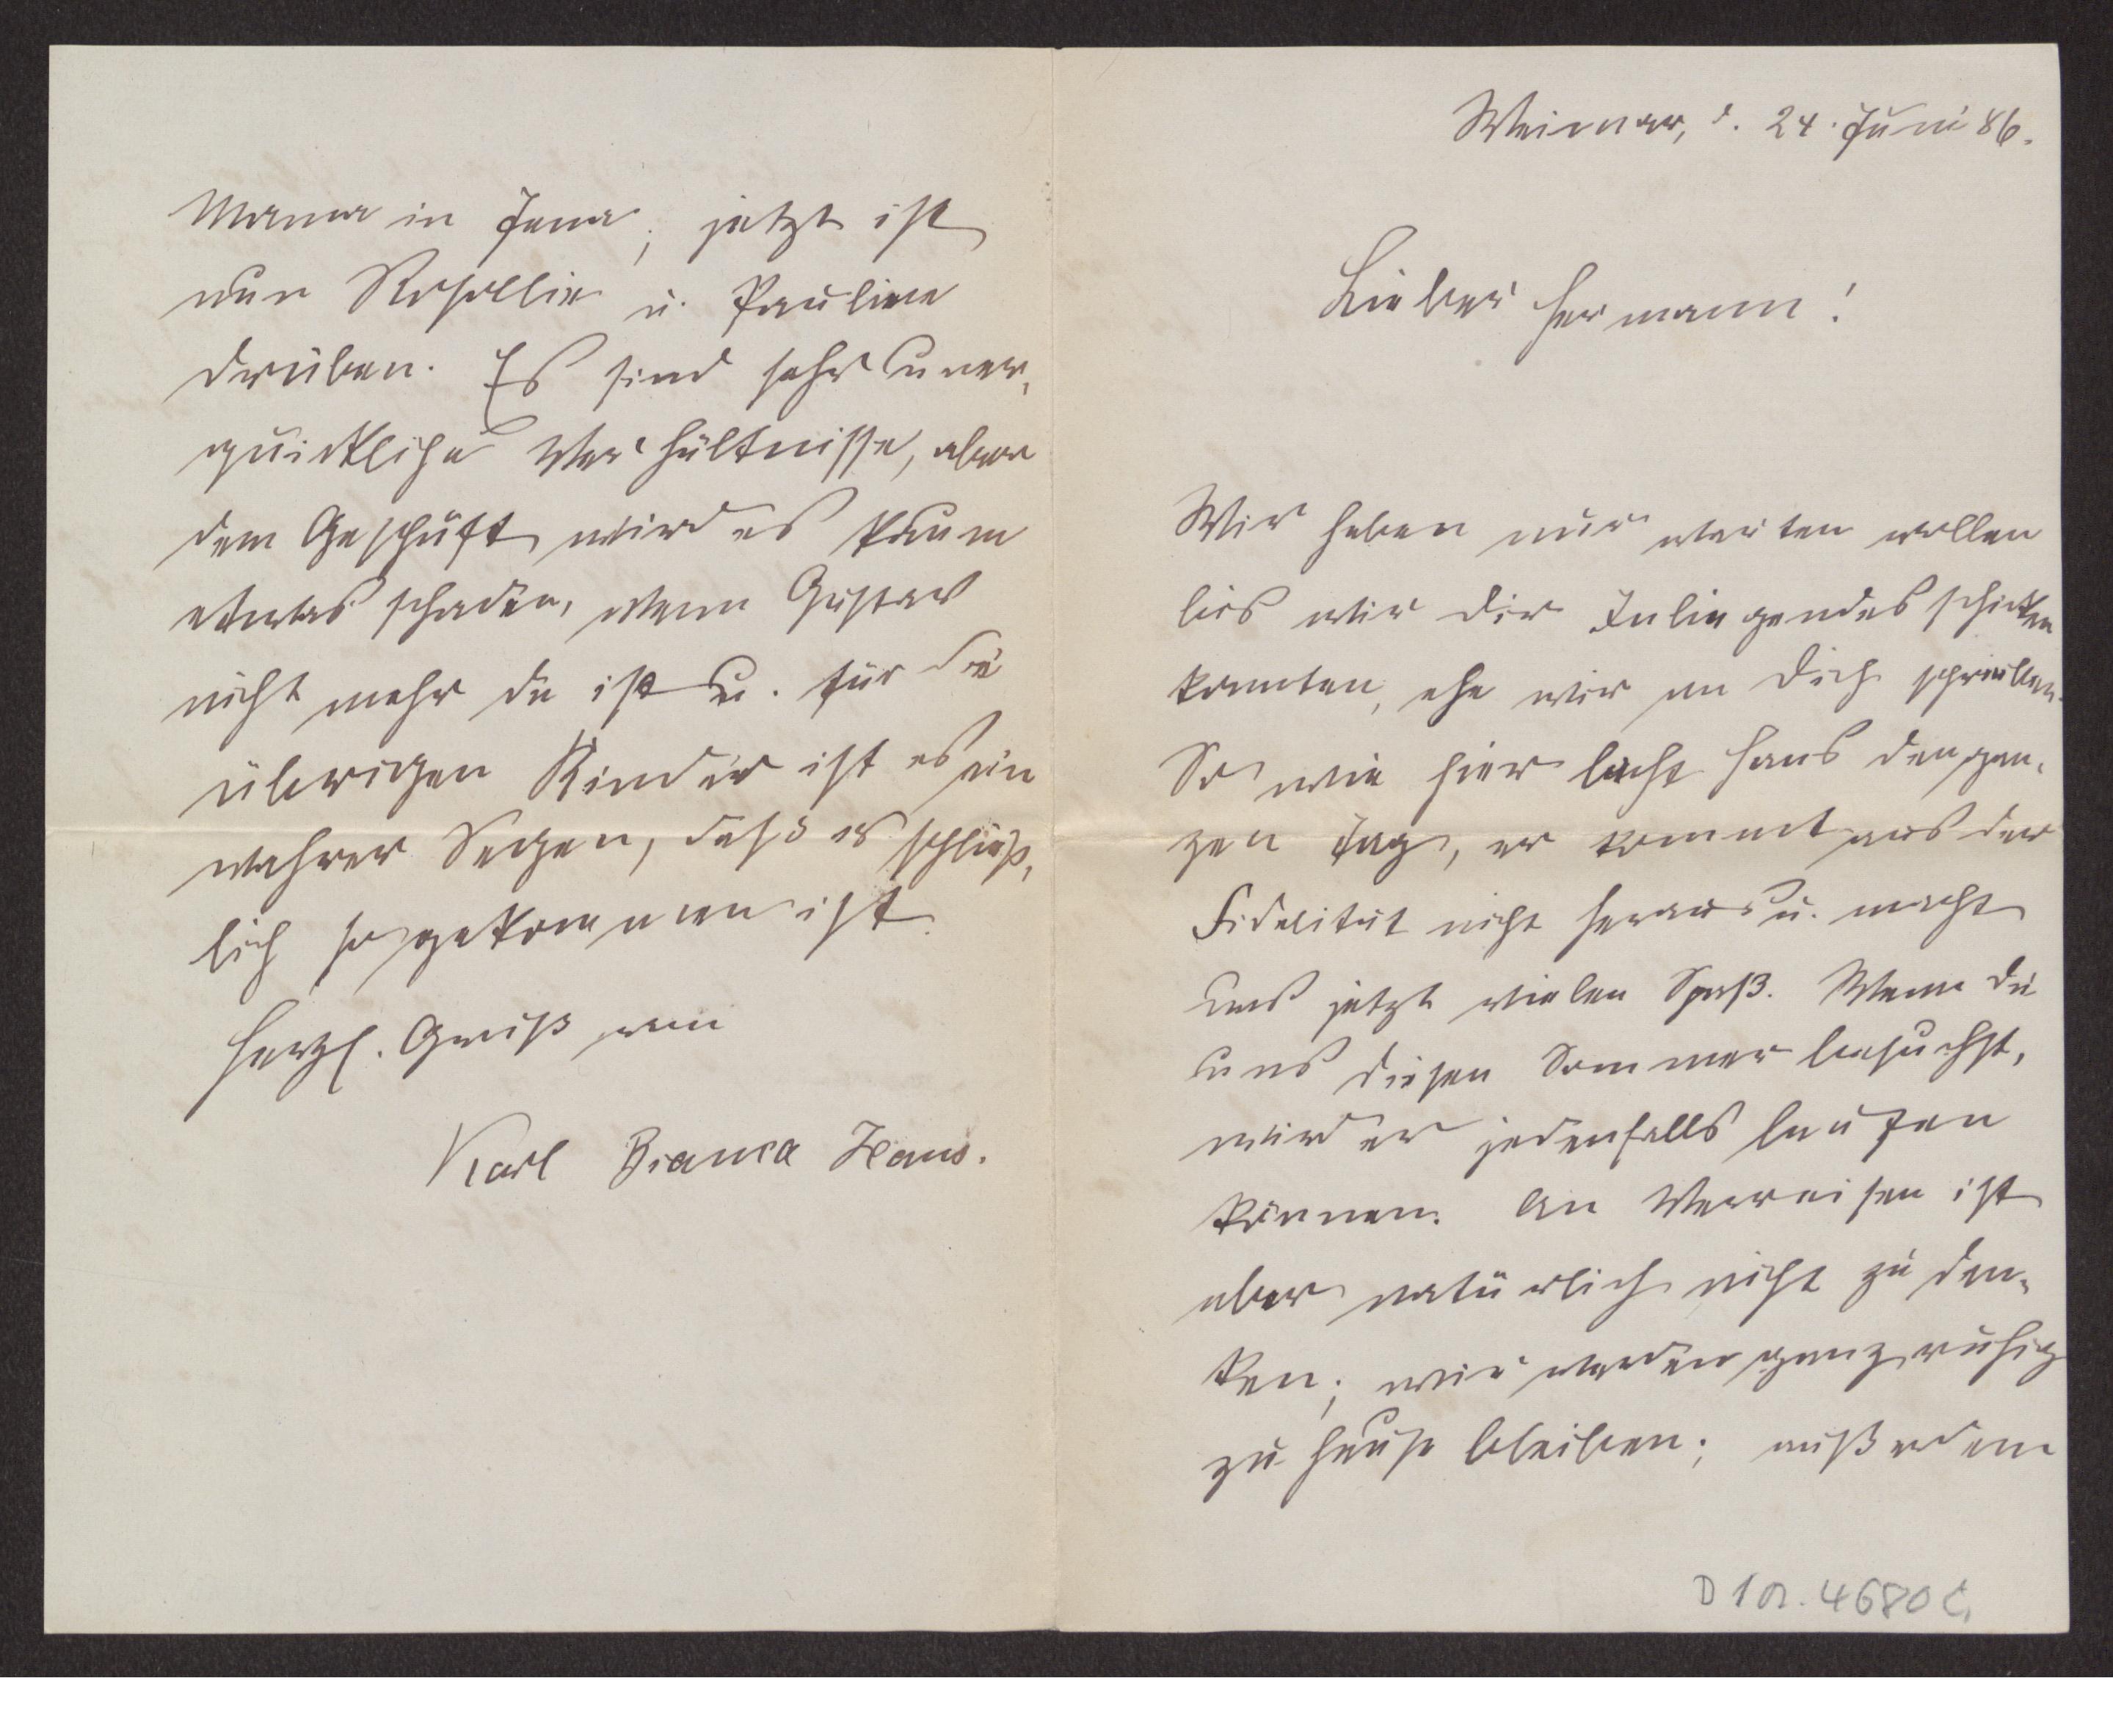 Weimar, d. 24. Juni 86.
Lieber Hermann!
Wir haben nur warten wollen
bis wir Dir Inliegendes schicken
konnten, ehe wir an Dich schrieben.
So wie hier lacht Hans den gan-
zen Tag, er kommt aus der
Fidelität nicht heraus u. macht
uns jetzt vielen Spaß. Wenn Du
uns diesen Sommer besuchst,
wird er jedenfalls laufen
können. An Verreisen ist
aber natürlich nicht zu den-
ken; wir werden ganz ruhig
zu Hause bleiben; außerdem
D 1 n. 4680 C
Mama in Jena; jetzt ist
nun Rosallie u. Pauline
drüben. Es sind sehr uner-
quickliche Verhältnisse, aber
dem Geschäft wird es kaum
etwas schaden, wenn Gustav
nicht mehr da ist u. für die
übrigen Kinder ist es ein
wahrer Segen, dass es schließ-
lich so gekommen ist.
Herzl. Gruß von
Karl Bianca Hans.